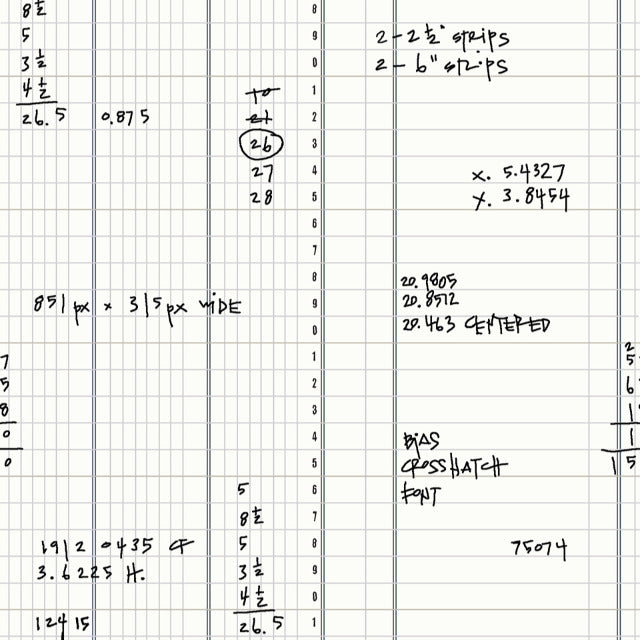 8 ½
5
3 ½
4 ½
26.5 0.875
2 - 2 ½" STRIPS
2 - 6" STRIPS
26
27
28
x. 5.4327
y. 3.8454
851 px x 315 px WIDE
20.9805
20.8512
20.463 CENTERED
BIAS
CROSSHATCH
FONT
75074
5
8 ½
5
3 ½
4 ½
26.5
1912 0435 CF
3.6225 H.
12415
8
9
0
1
2
3
4
5
6
7
8
9
0
1
2
3
4
5
6
7
8
9
0
1
7
5
8
0
0
2
5
6
1
1
15